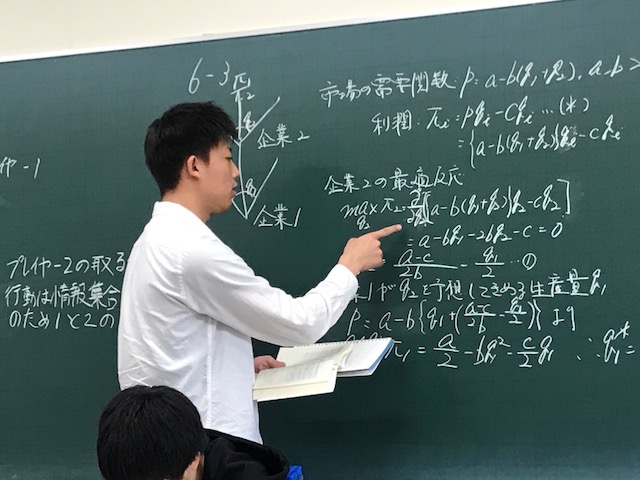 ヤー1
プレイヤー2の取る
行動は1情報集合
のため1と2の
6-3
π2
q2
企業2
q1
企業1
市場の需要関数: P = a-b(q1+q2), a.b>
利潤: πi = Pqi - Cqi …(*)
= {a-b(q1+q2)}qi - cqi
企業2の最適反応
max π2 = [a-b(q1+q2)q2-cq2]
q2
= a-bq1-2bq2-c=0
a-c/2b - q1/2 …①
1がq2を予想してきめる生産量q1
P = a-b{q1+(a-c/2b - q1/2)}より
π1 = a/2 - bq1² - c/2 q1 ∴q1* =